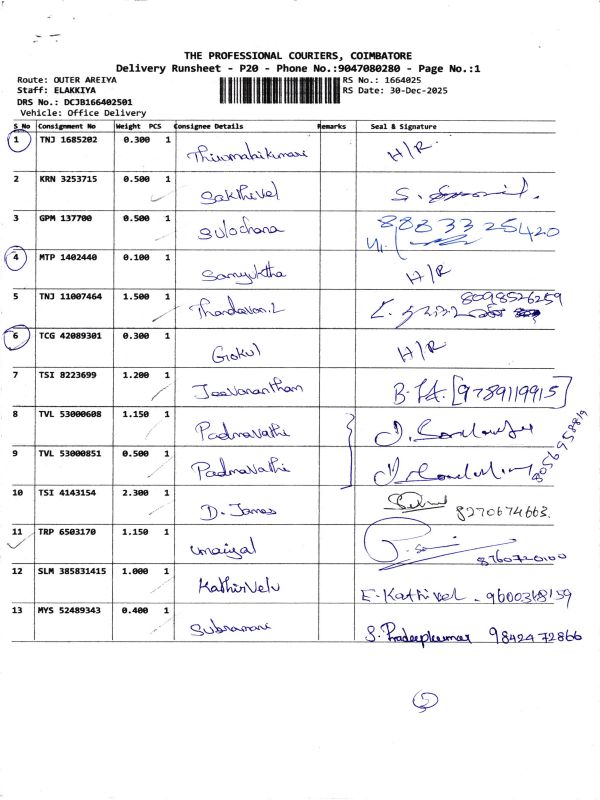 THE PROFESSIONAL COURIERS, COIMBATORE
Delivery Runsheet - P20 - Phone No.:9047080280 - Page No.:1
Route: OUTER AREIYA RS No.: 1664025
Staff: ELAKKIYA RS Date: 30-Dec-2025
DRS No.: DCJB166402501
Vehicle: Office Delivery
S No Consignment No Weight PCS Consignee Details Remarks Seal & Signature
1 TNJ 1685202 0.300 1 Thirumahikumari H/R
2 KRN 3253715 0.500 1 Sakthivel
3 GPM 137700 0.500 1 Sulochana 88833 25420
4 MTP 1402440 0.100 1 Samyuktha H/R
5 TNJ 11007464 1.500 1 Thandavan.L 8098526259
6 TCG 42089301 0.300 1 Gokul H/R
7 TSI 8223699 1.200 1 Jeevanantham [9789119915]
8 TVL 53000608 1.150 1 Padmavathi
9 TVL 53000851 0.500 1 Padmavathi
10 TSI 4143154 2.300 1 D. James 8270674663.
11 TRP 6503170 1.150 1 Umaiyal 8760720100
12 SLM 385831415 1.000 1 Kathirvelu E. Kathivel - 9600368159
13 MYS 52489343 0.400 1 Subramani S. Pradeepkumar 98424 72866